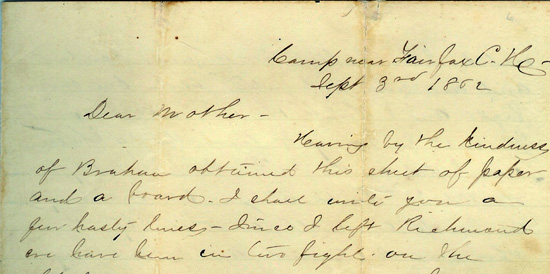 Camp near Fairfax C. H.
Sept 3rd 1862
Dear Mother -
Having by the kindness
of Braham obtained this sheet of paper
and a board. I shall write you a
few hasty lines - Since I left Richmond
we have been in two fights on the